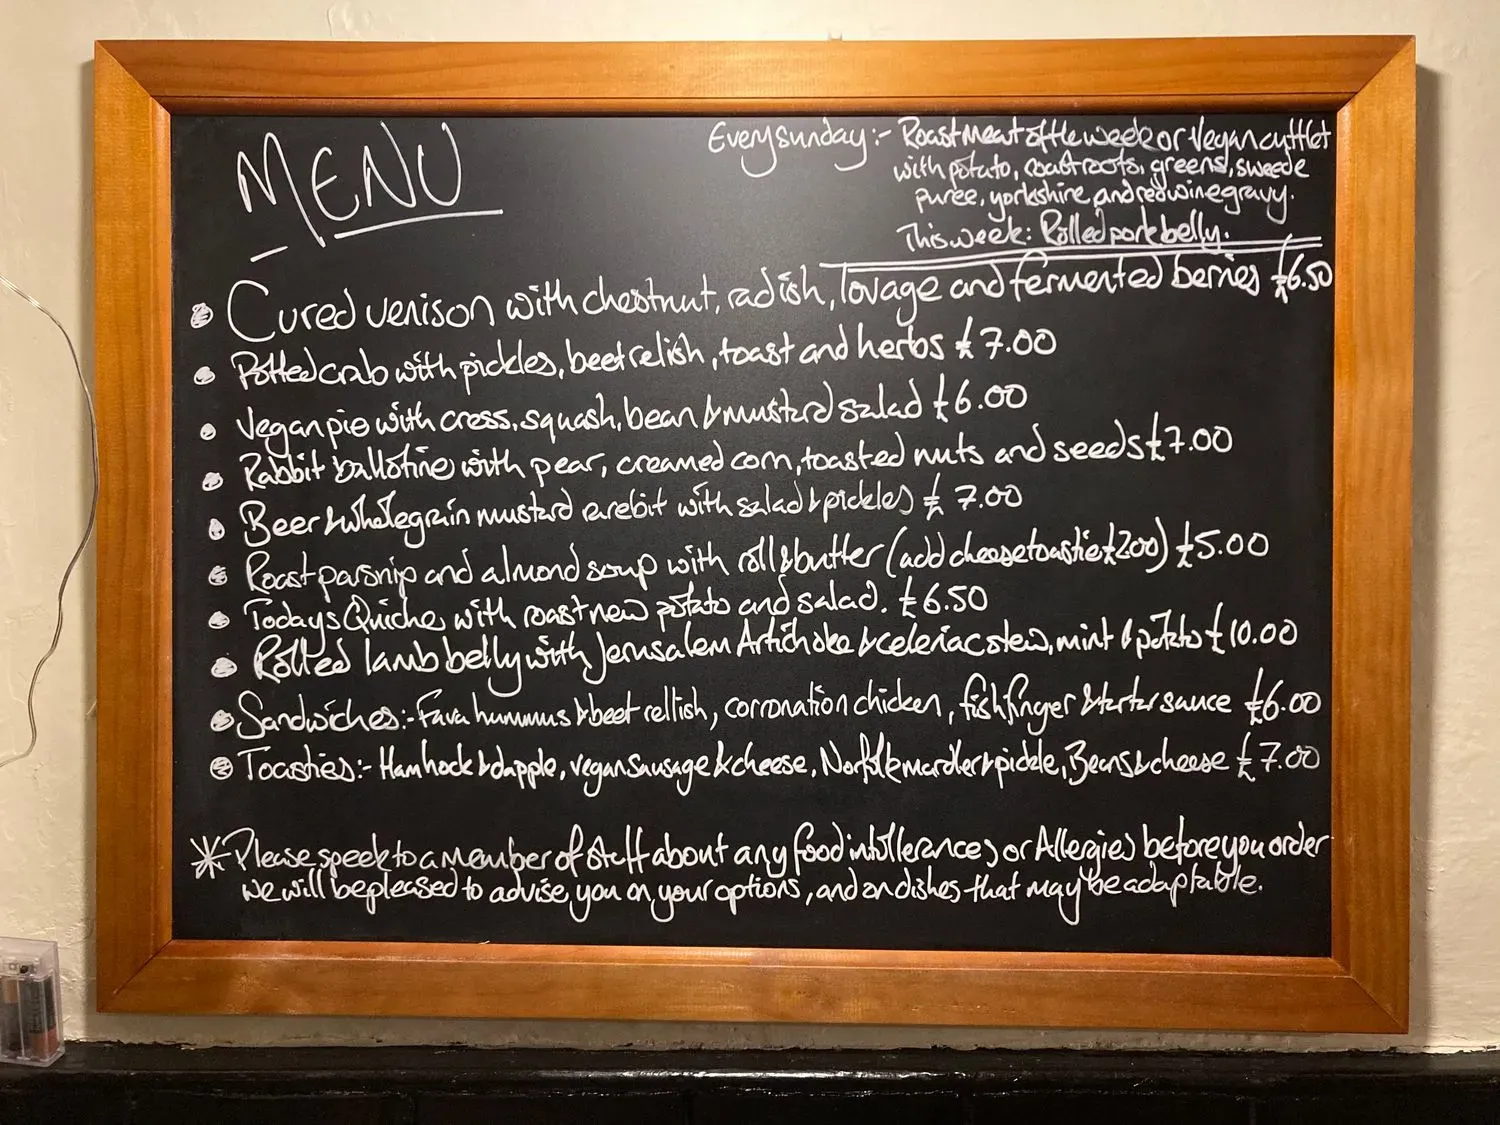 MENU
Every sunday:- Roast meat of the week or vegan cuttlet
with potato, roast roots, greens, sweede
puree, yorkshire, and red wine gravy.
This week: Rolled pork belly.
• Cured venison with chestnut, radish, lovage and fermented berries £6.50
• Potted crab with pickles, beet relish, toast and herbs £7.00
• Vegan pie with cress, squash, bean & mustard salad £6.00
• Rabbit ballotine with pear, creamed corn, toasted nuts and seeds £7.00
• Beer & wholegrain mustard rarebit with salad & pickles £7.00
• Roast parsnip and almond soup with roll & butter (add cheese toastie £2.00) £5.00
• Todays Quiche with roast new potato and salad. £6.50
• Rolled lamb belly with Jerusalem Artichoke & celeriac stew, mint & potato £10.00
• Sandwiches:- Fava hummus & beet rellish, corronation chicken, fish finger & tartar sauce £6.00
• Toasties:- Ham hock & dapple, vegan sausage & cheese, Norfolk mardler & pickle, Beans & cheese £7.00
* Please speek to a member of staff about any food intollerances or Allergies before you order
we will be pleased to advise you on your options, and on dishes that may be adaptable.